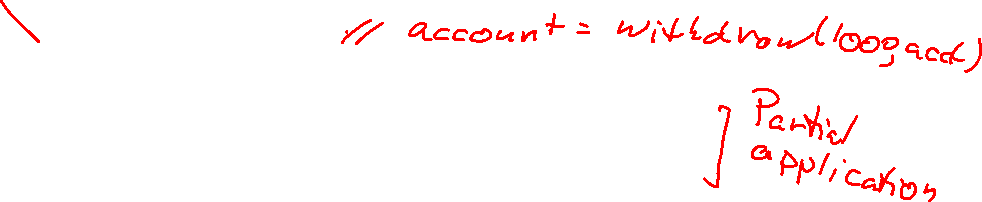 // account = withdraw(100, acct)
Partial
application